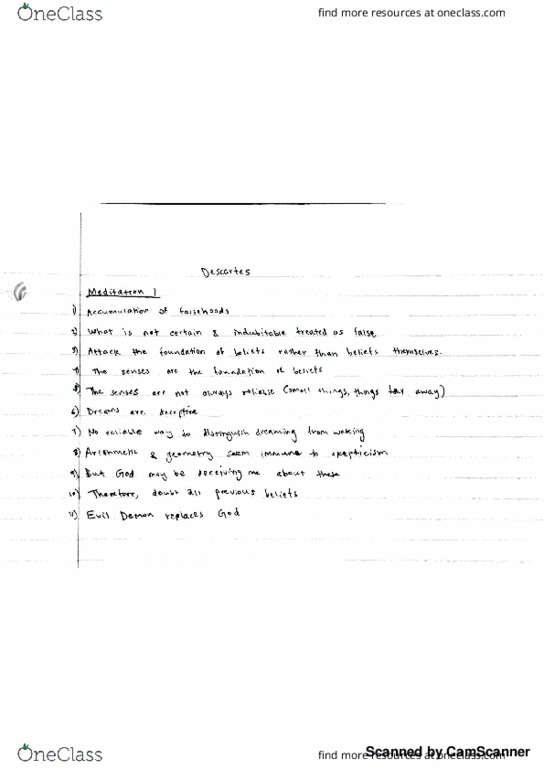 OneClass
find more resources at oneclass.com
Descartes
Meditation 1
1) Accumulation of falsehoods
2) What is not certain & indubitable treated as false
3) Attack the foundation of beliefs rather than beliefs themselves.
4) The senses are the foundation of beliefs
5) The senses are not always reliable (small things, things far away)
6) Dreams are deceptive
7) No reliable way to distinguish dreaming from waking
8) Arithmetic & geometry seem immune to skepticism
9) But God may be deceiving me about these
10) Therefore, doubt all previous beliefs
11) Evil Demon replaces God
OneClass
find more resources at oneclass.com
Scanned by CamScanner